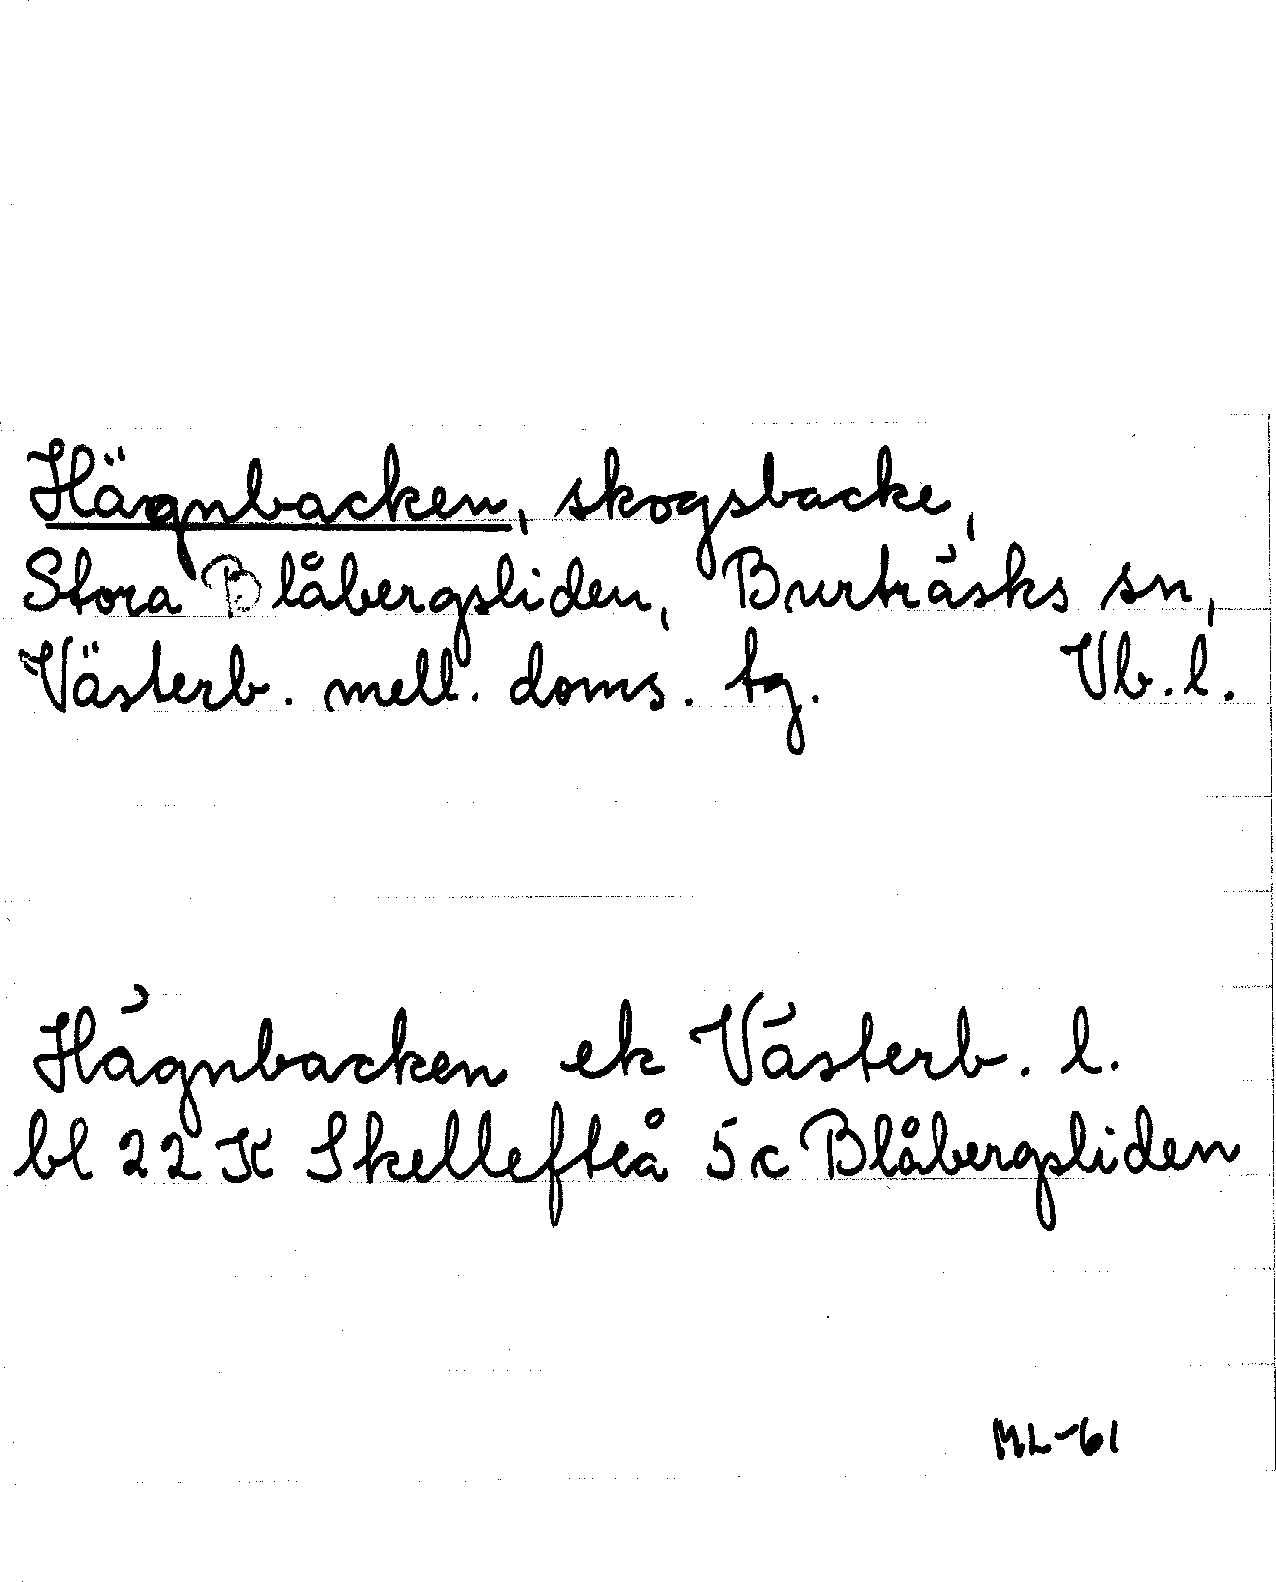 Hägnbacken, skogsbacke,
Stora Blåbergsliden, Burträsks sn,
Västerb. mell. doms. tg. Vb. l.
Hägnbacken ek Västerb. l.
bl 22 K Skellefteå 5 c Blåbergsliden
ML-61